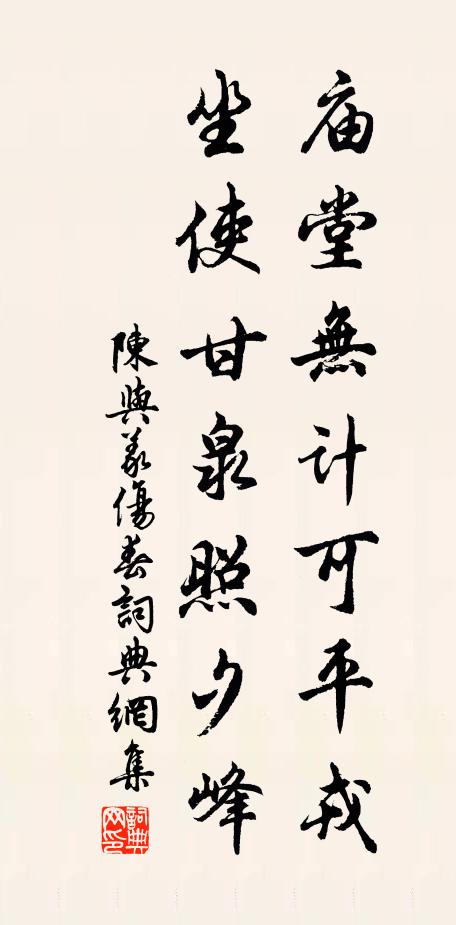 庙堂無计可平戎
坐使甘泉照夕峰
陳與義傷春詞典網集
詞典網印